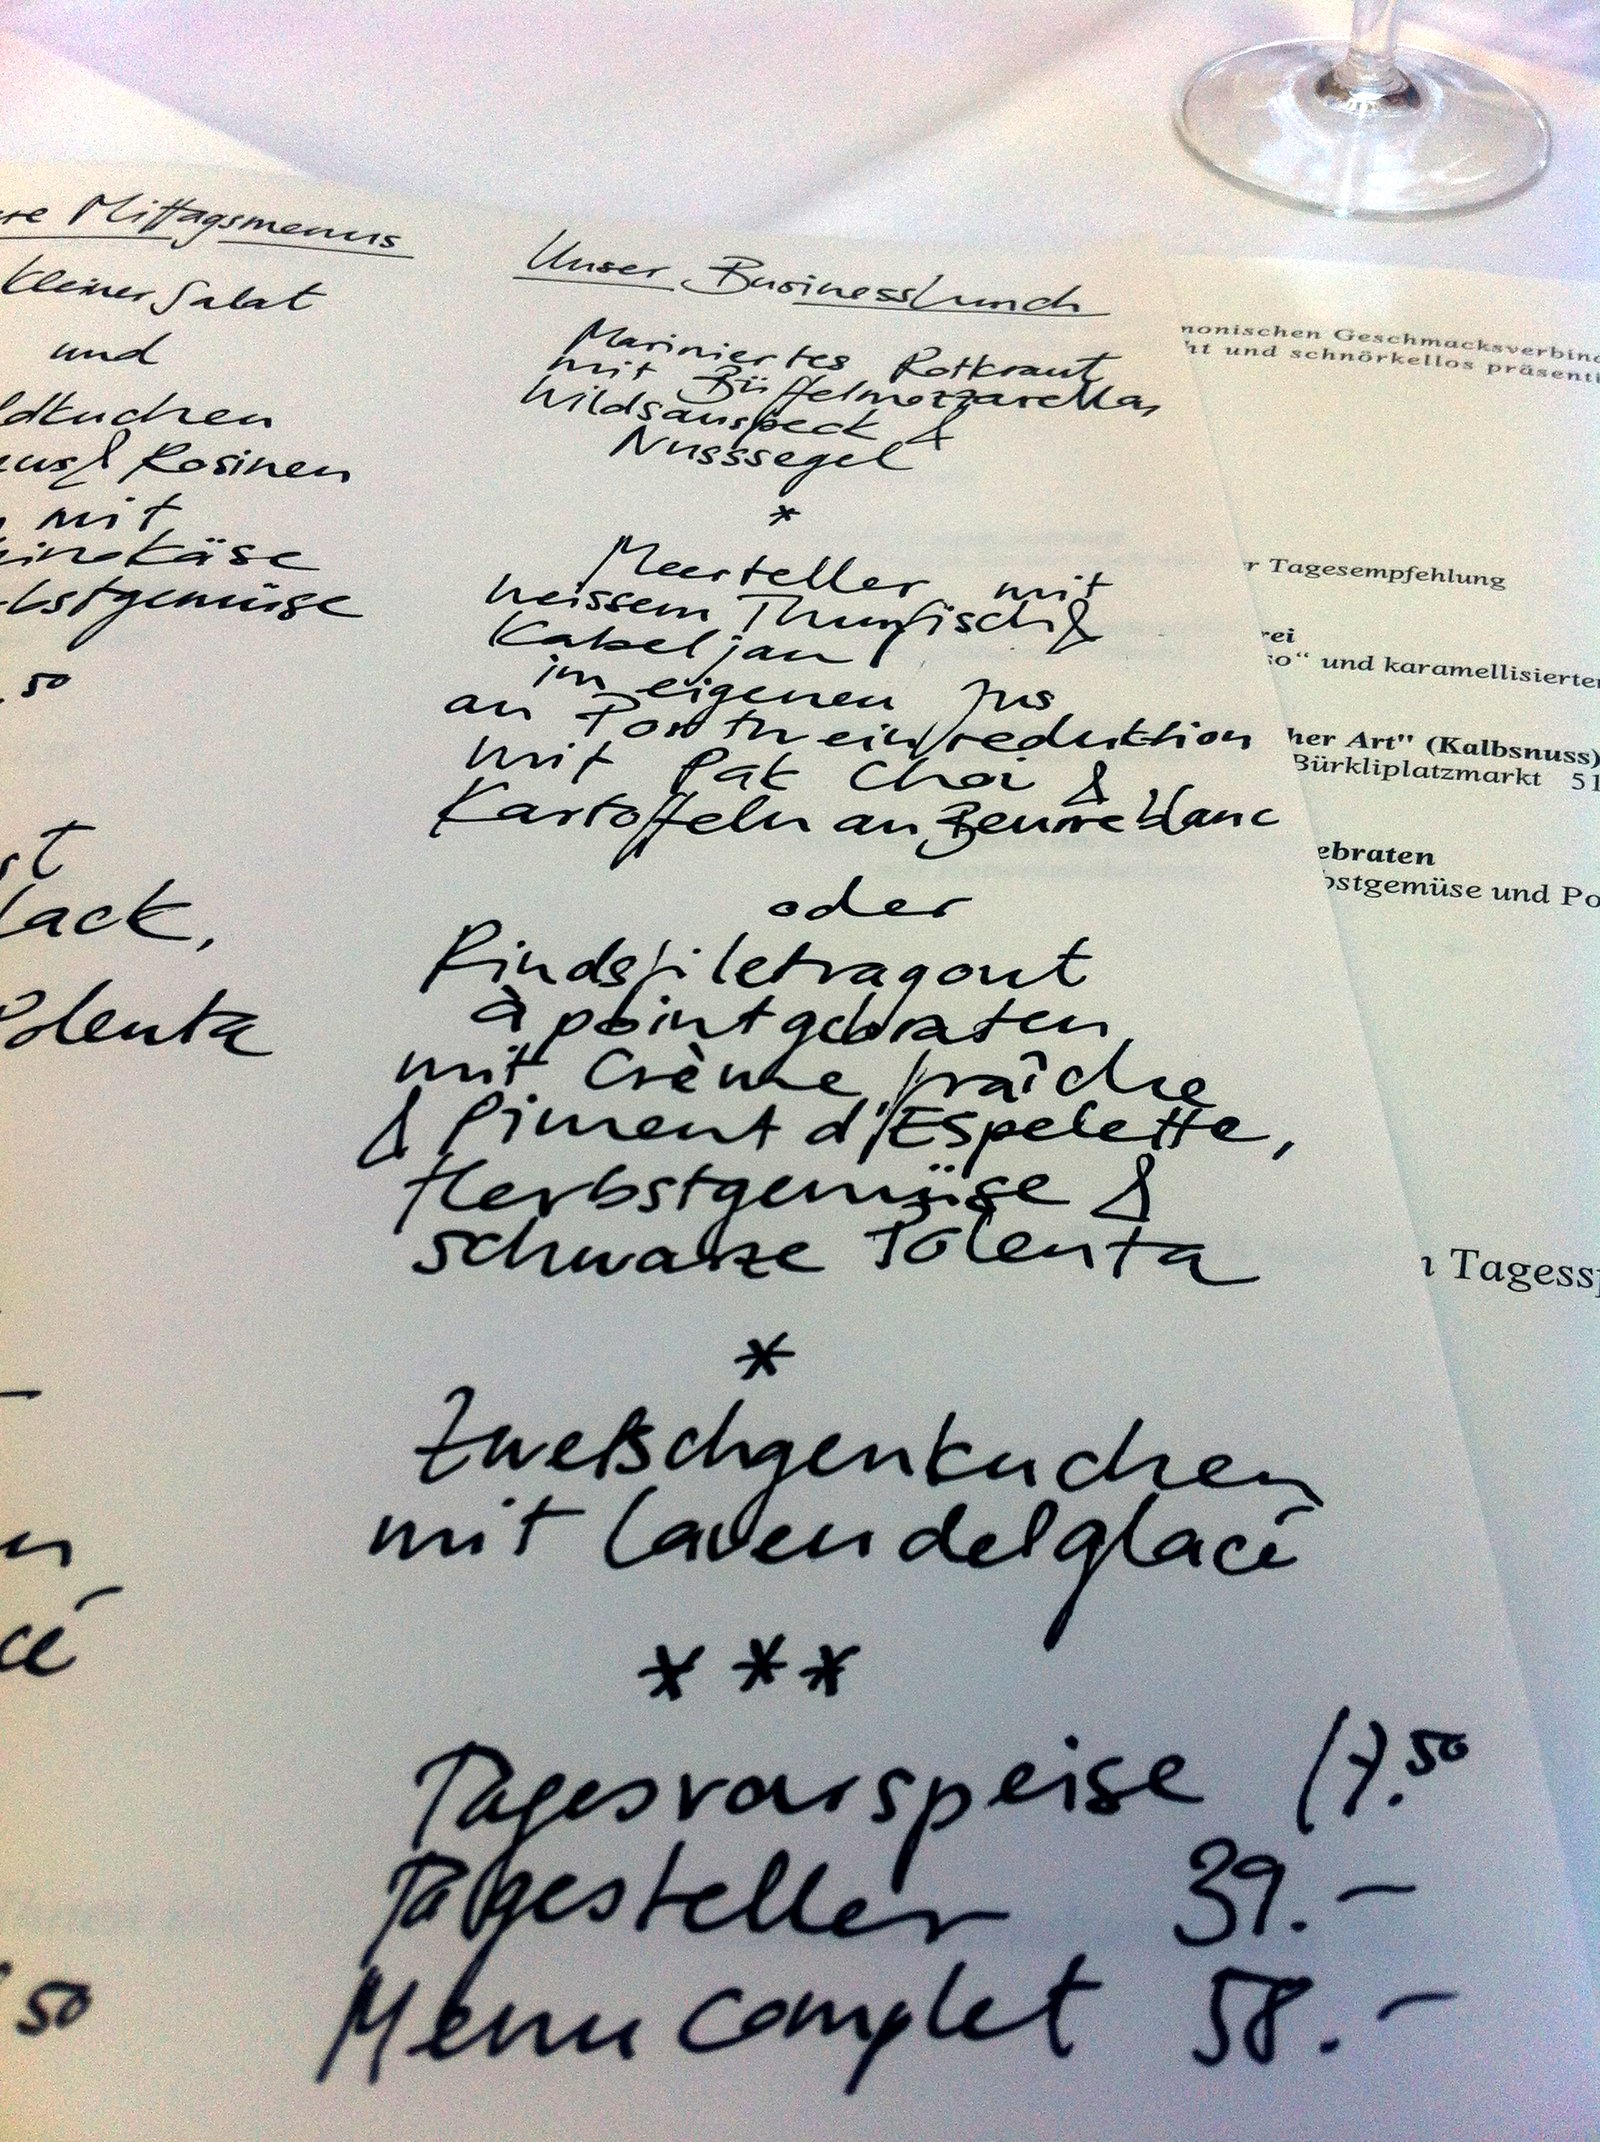 Mittagsmenus
kleiner Salat
und
Rosinen
mit
käse
.50
Polenta
50
Unser Businesslunch
Mariniertes Rotkraut
mit Büffelmozzarella,
Wildsauspeck &
Nusssegel
*
Meerteller mit
heissem Thunfisch &
Kabeljau
im eigenen Jus
an Portweinreduktion
mit Pak Choi &
Kartoffeln an Beurre blanc
oder
Rindsfiletragout
à point gebraten
mit Crème fraîche
& Piment d'Espelette,
Herbstgemüse &
schwarze Polenta
*
Zwetschgenkuchen
mit Lavendelglacé
* * *
Tagesvorspeise 17.50
Tagesteller 39.–
Menu complet 58.–
nonischen Geschmacksverbind
ht und schnörkellos präsenti
r Tagesempfehlung
rei
so“ und karamellisierte
her Art" (Kalbsnuss)
Bürkliplatzmarkt 51
ebraten
bstgemüse und Po
n Tagessp